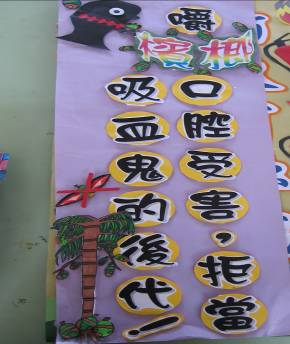 嚼檳榔
口腔受害，拒當
吸血鬼的後代！